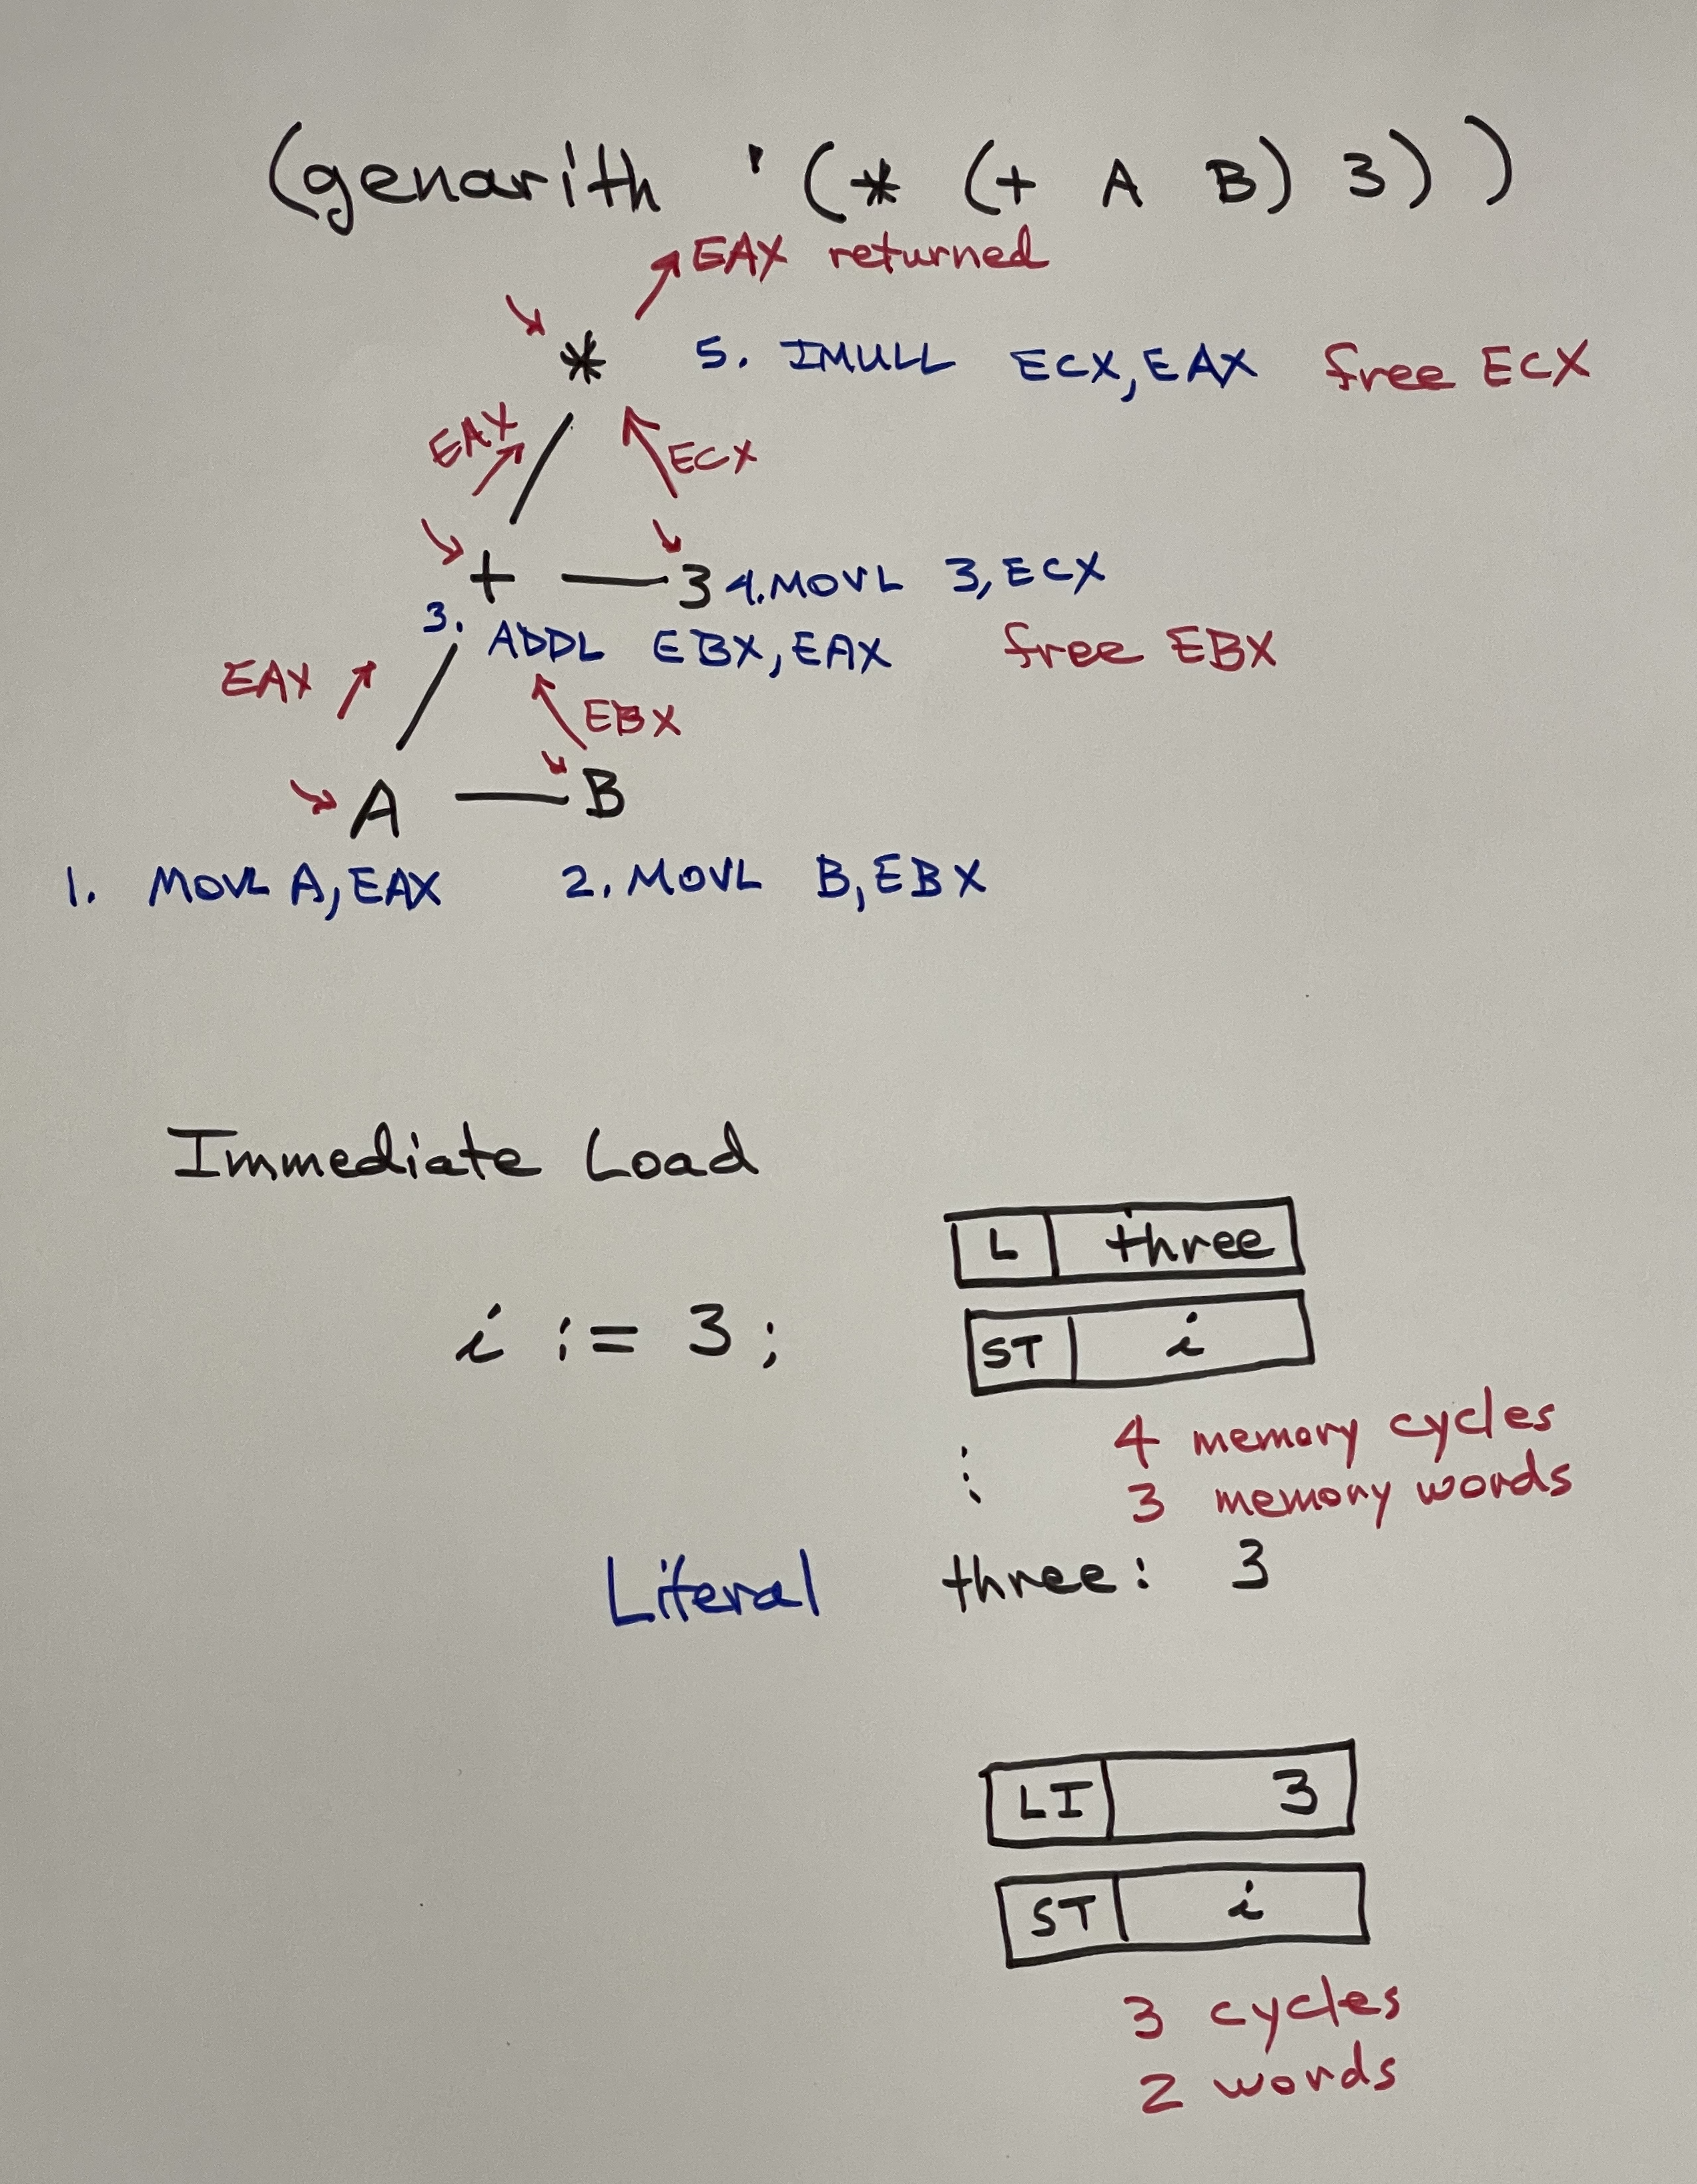 (genarith '(* (+ A B) 3))
EAX returned
* 5. IMULL ECX,EAX free ECX
EAX ECX
+ 3 4. MOVL 3,ECX
3. ADDL EBX,EAX free EBX
EAX EBX
A B
1. MOVL A,EAX 2. MOVL B,EBX
Immediate Load
L three
i := 3;
ST i
4 memory cycles
3 memory words
Literal three: 3
LI 3
ST i
3 cycles
2 words